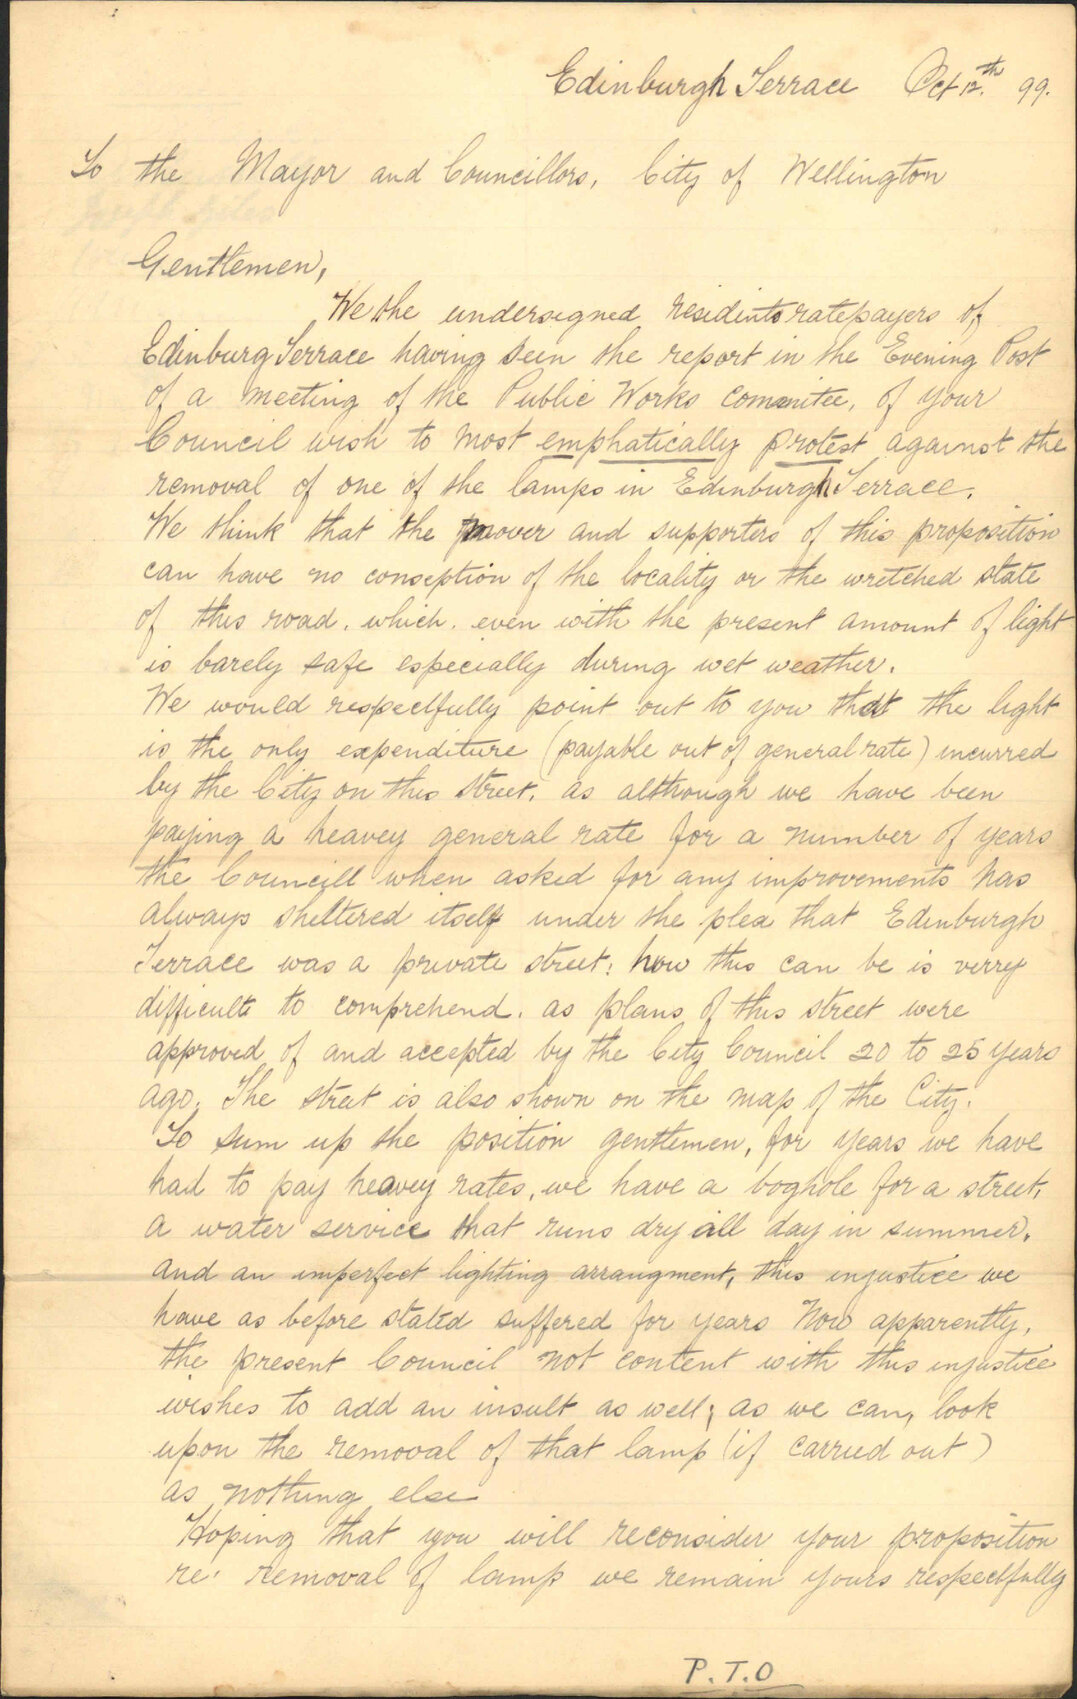 Edinburgh Terrace Oct 12th. 99.
To the Mayor and Councillors, City of Wellington
Gentlemen,
We the undersigned residints ratepayers of
Edinburg Terrace having seen the report in the Evening Post
of a meeting of the Public Works commitee, of your
Council wish to most emphatically protest against the
removal of one of the lamps in Edinburgh Terrace.
We think that the mover and supporters of this proposition
can have no conseption of the locality or the wretched state
of this road. which. even with the present amount of light
is barely safe especially during wet weather.
We would respectfully point out to you that the light
is the only expenditure (payable out of general rate) incurred
by the City on this street. as although we have been
paying a heavey general rate for a number of years
the Councill when asked for any improvements has
always sheltered itself under the plea that Edinburgh
Terrace was a private street: how this can be is verrey
difficult to comprehend. as plans of this street were
approved of and accepted by the City Council 20 to 25 years
ago. The street is also shown on the map of the City.
To sum up the position gentlemen, for years we have
had to pay heavey rates, we have a boghole for a street,
a water service that runs dry all day in summer.
and an imperfect lighting arrangment, this injustice we
have as before stated suffered for years Now apparently,
the present Council not content with this injustice
wishes to add an insult as well; as we can, look
upon the removal of that lamp (if carried out)
as nothing else
Hoping that you will reconsider your proposition
re. removal of lamp we remain yours respectfully
P.T.O